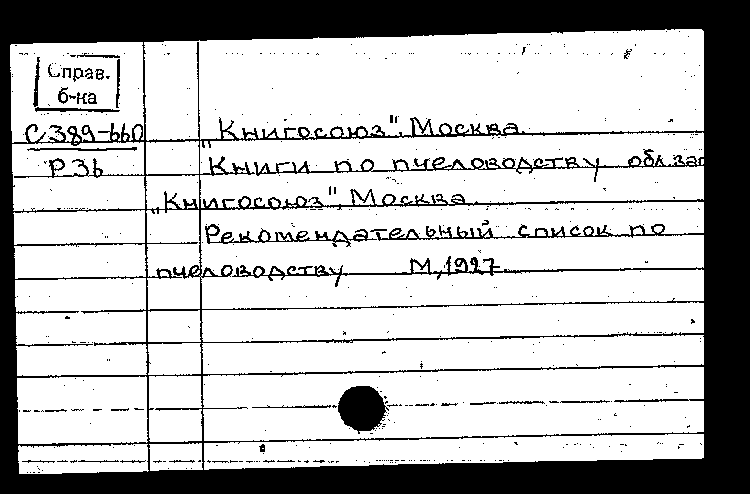 Справ.
б-ка
С389-660
Р36
„Книгосоюз". Москва.
Книги по пчеловодству обл. заг
„Книгосоюз", Москва.
Рекомендательный список по
пчеловодству М, 1927.